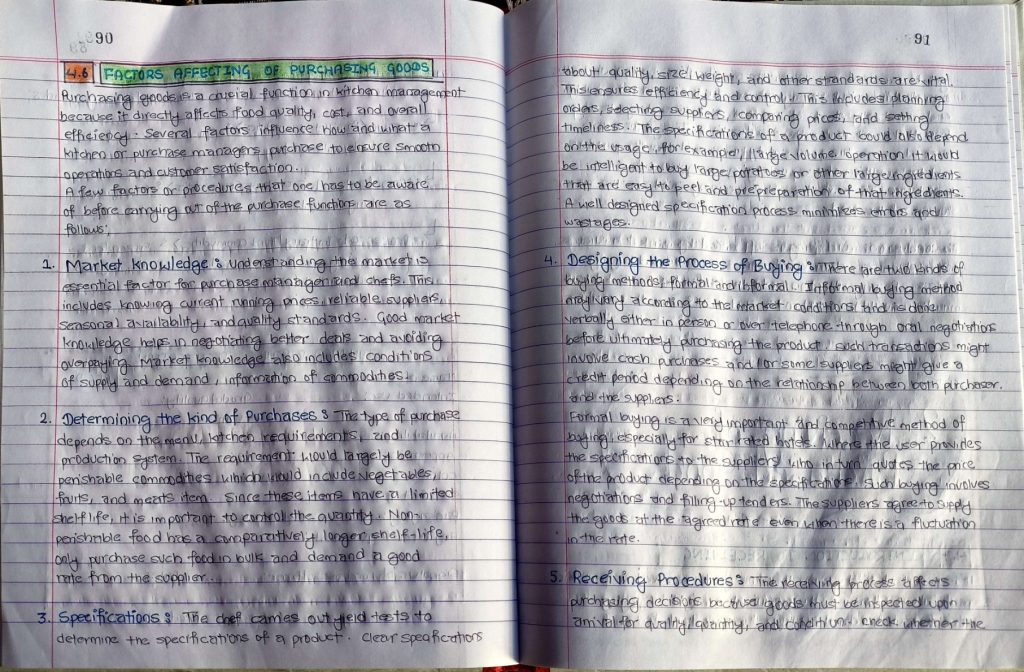 90
4.6 FACTORS AFFECTING OF PURCHASING GOODS
Purchasing goods is a crucial function in kitchen management
because it directly affects food quality, cost, and overall
efficiency. Several factors influence how and what a
kitchen or purchase managers purchase to ensure smooth
operations and customer satisfaction.
A few factors or procedures that one has to be aware
of before carrying out of the purchase functions are as
follows;
1. Market knowledge : Understanding the market is
essential factor for purchase manager and chefs. This
includes knowing current running prices, reliable suppliers,
seasonal availability, and quality standards. Good market
knowledge helps in negotiating better deals and avoiding
overpaying. Market knowledge also includes conditions
of supply and demand, information of commodities.
2. Determining the kind of Purchases : The type of purchase
depends on the menu, kitchen requirements, and
production system. The requirement would largely be
perishable commodities which would include vegetables,
fruits, and meats item. Since these items have a limited
shelf life, it is important to control the quantity. Non-
perishable food has a comparatively longer shelf-life,
only purchase such food in bulk and demand a good
rate from the supplier.
3. Specifications : The chef carries out yield tests to
determine the specifications of a product. Clear specifications
91
about quality, size, weight, and other strandards are vital.
This ensures efficiency and control. This includes planning
orders, selecting suppliers, comparing prices, and setting
timeliness. The specifications of a product could also depend
on the usage, for example, large volume operation it would
be intelligent to buy large potatoes or other large ingredients
that are easy to peel and prepreparation of that ingredients.
A well designed specification process minimizes errors and
wastages.
4. Designing the Process of Buying : There are two kinds of
buying methods formal and informal. Informal buying method
may vary according to the market conditions and is done
verbally either in person or over telephone through oral negotiations
before ultimately purchasing the product, such transactions might
involve cash purchases and/or some suppliers might give a
credit period depending on the relationship between both purchaser.
and the suppliers.
Formal buying is a very important and competitive method of
buying, especially for star rated hotels. Where the user provides
the specifications to the suppliers, who in turn, quotes the price
of the product depending on the specifications. Such buying involves
negotiations and filling-up tenders. The suppliers agree to supply
the goods at the agreed rate even when there is a fluctuation
in the rate.
5. Receiving Procedures : The receiving process affects
purchasing decisions because goods must be inspected upon
arrival for quality, quantity, and condition. check whether the